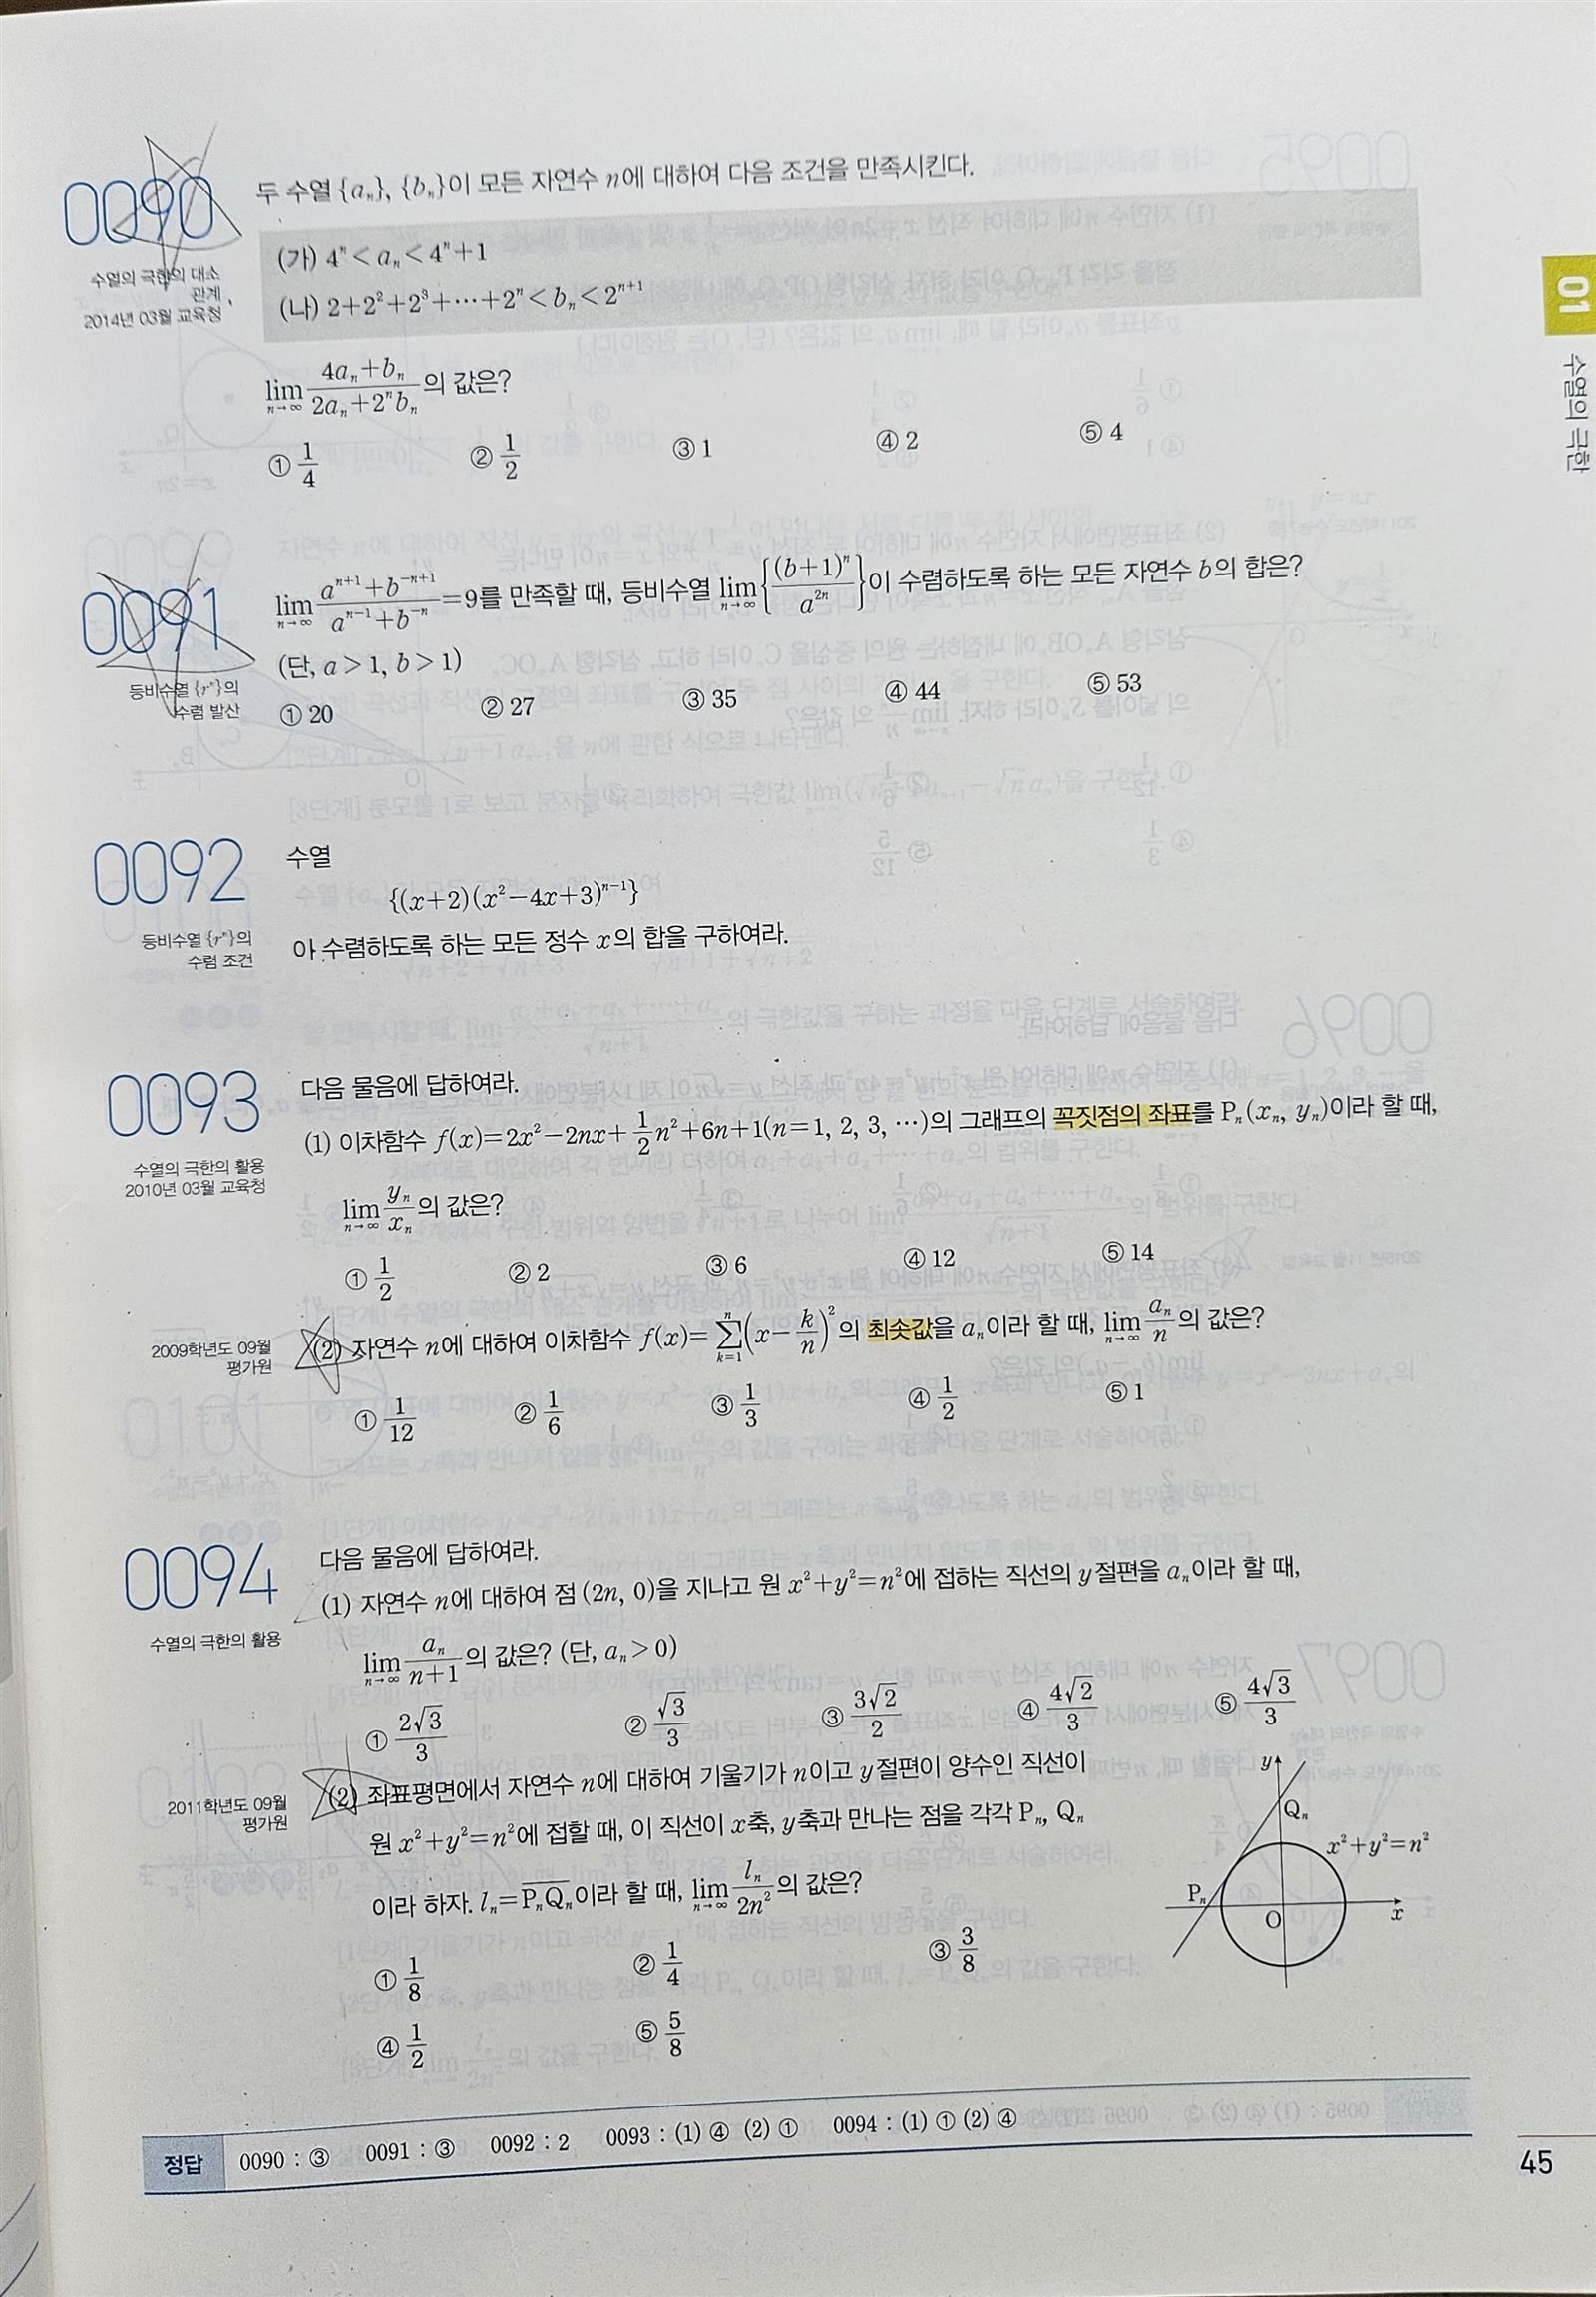 0090
수열의 극한의 대소
관계
2014년 03월 교육청
두 수열 {aₙ}, {bₙ}이 모든 자연수 n에 대하여 다음 조건을 만족시킨다.
(가) 4ⁿ < aₙ < 4ⁿ+1
(나) 2+2²+2³+⋯+2ⁿ < bₙ < 2ⁿ⁺¹
lim_{n→∞} (4aₙ+bₙ)/(2aₙ+2ⁿbₙ)의 값은?
① 1/4 ② 1/2 ③ 1 ④ 2 ⑤ 4
0091
등비수열 {rⁿ}의
수렴 발산
lim_{n→∞} (aⁿ⁺¹+b⁻ⁿ⁺¹)/(aⁿ⁻¹+b⁻ⁿ)=9를 만족할 때, 등비수열 lim_{n→∞} {(b+1)ⁿ/a²ⁿ}이 수렴하도록 하는 모든 자연수 b의 합은?
(단, a > 1, b > 1)
① 20 ② 27 ③ 35 ④ 44 ⑤ 53
0092
등비수열 {rⁿ}의
수렴 조건
수열
{(x+2)(x²-4x+3)ⁿ⁻¹}
아 수렴하도록 하는 모든 정수 x의 합을 구하여라.
0093
수열의 극한의 활용
2010년 03월 교육청
다음 물음에 답하여라.
(1) 이차함수 f(x)=2x²-2nx+1/2n²+6n+1(n=1, 2, 3, ⋯)의 그래프의 꼭짓점의 좌표를 Pₙ(xₙ, yₙ)이라 할 때,
lim_{n→∞} yₙ/xₙ의 값은?
① 1/2 ② 2 ③ 6 ④ 12 ⑤ 14
2009학년도 09월
평가원
(2) 자연수 n에 대하여 이차함수 f(x)=∑_{k=1}^{n}(x-k/n)²의 최솟값을 aₙ이라 할 때, lim_{n→∞} aₙ/n의 값은?
① 1/12 ② 1/6 ③ 1/3 ④ 1/2 ⑤ 1
0094
수열의 극한의 활용
다음 물음에 답하여라.
(1) 자연수 n에 대하여 점 (2n, 0)을 지나고 원 x²+y²=n²에 접하는 직선의 y절편을 aₙ이라 할 때,
lim_{n→∞} aₙ/(n+1)의 값은? (단, aₙ > 0)
① 2√3/3 ② √3/3 ③ 3√2/2 ④ 4√2/3 ⑤ 4√3/3
2011학년도 09월
평가원
(2) 좌표평면에서 자연수 n에 대하여 기울기가 n이고 y절편이 양수인 직선이
원 x²+y²=n²에 접할 때, 이 직선이 x축, y축과 만나는 점을 각각 Pₙ, Qₙ
이라 하자. lₙ=PₙQₙ이라 할 때, lim_{n→∞} lₙ/2n²의 값은?
① 1/8 ② 1/4 ③ 3/8
④ 1/2 ⑤ 5/8
y
Qₙ
x²+y²=n²
Pₙ
O
x
정답 0090 : ③ 0091 : ③ 0092 : 2 0093 : (1) ④ (2) ① 0094 : (1) ① (2) ④
45
01
수열의 극한